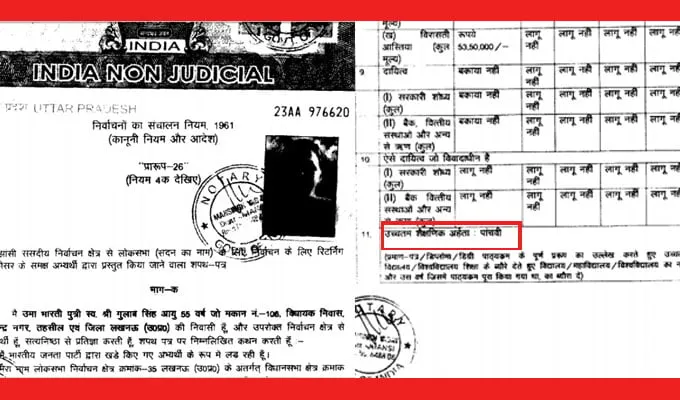 INDIA
INDIA NON JUDICIAL
प्रदेश UTTAR PRADESH
23AA 976620
निर्वाचनों का संचालन नियम, 1961
(कानूनी नियम और आदेश)
"प्रारूप-26"
(नियम 4क देखिए)
NOTARY
झासी संसदीय निर्वाचन क्षेत्र से (सदन का नाम) के लिए निर्वाचन के लिए रिटर्निंग
के समक्ष अभ्यर्थी द्वारा प्रस्तुत किया जाने वाला शपथ-पत्र
भाग-क
मै उमा भारती पुत्री स्व. श्री गुलाब सिंह आयु 55 वर्ष जो मकान नं.-106, विधायक निवास,
नगर, तहसील एवं जिला लखनऊ (उ0प्र0) की निवासी हूँ, और उपरोक्त निर्वाचन क्षेत्र से
हूँ, सत्यनिष्ठा से प्रतिज्ञा करती हूँ, शपथ पत्र पर निम्नलिखित कथन करती हूँ :-
भारतीय जनता पार्टी द्वारा खडे किए गए अभ्यर्थी के रूप मे लड रही हूँ।
नाम लोकसभा निर्वाचन क्षेत्र कमाक-35 लखनऊ (उ0प्र0) के अतर्गत विधानसभा क्षेत्र कमाक
मूल्य)
(ख) विरासती आस्तिया (कुल मूल्य) रूपये 53,50,000/- लागू नही लागू नही लागू नहीं लागू नहीं
9 दायित्व बकाया नही लागू नही लागू नहीं लागू नहीं लागू नहीं
(I) सरकारी शोध्य (कुल) बकाया नहीं लागू नहीं लागू नहीं लागू नहीं लागू नहीं
(II) बैंक, वित्तीय संस्थाओं और अन्य से ऋण (कुल) बकाया नहीं लागू नहीं लागू नहीं लागू नहीं लागू नहीं
10. ऐसे दायित्व जो विवादाधीन है
(I) सरकारी शोध्य (कुल) लागू नहीं लागू नही लागू नहीं लागू नहीं लागू नहीं
(II) बैक वित्तीय संस्थाओं और अन्य लागू नहीं लागू नही लागू नहीं लागू नहीं लागू नहीं
11. उच्चतम शैक्षणिक अर्हता : पांचवी
(प्रमाण-पत्र/डिप्लोमा/डिग्री पाठ्यकम के पूर्ण प्ररूप का उल्लेख करते हुए उच्चतम
विद्यालय/विश्वविद्यालय शिक्षा के ब्यौरे देते हुए विद्यालय/महाविद्यालय/विश्वविद्यालय का
और उस वर्ष जिसमे पाठ्यकम पूरा किया गया था, का ब्यौरा दें)
NOTARY